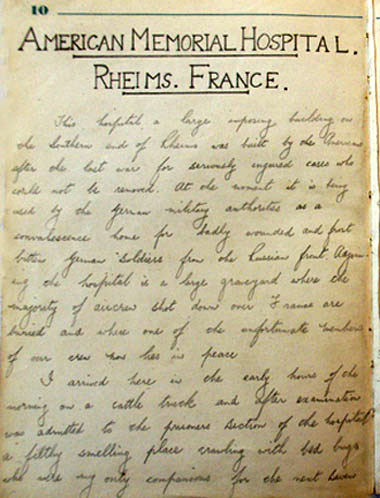 10
AMERICAN MEMORIAL HOSPITAL.
RHEIMS. FRANCE.
This hospital a large imposing building on
the Southern end of Rheims was built by the Americans
after the last war for seriously injured cases who
could not be removed. At the moment it is being
used by the German military authorities as a
convalescence home for badly wounded and frost
bitten German soldiers from the Russian front. Adjoin-
ing the hospital is a large graveyard where the
majority of aircrew shot down over France are
buried and where one of the unfortunate members
of our crew now lies in peace
I arrived here in the early hours of the
morning on a cattle truck and after examination
was admitted to the prisoners section of the hospital
a filthy smelling place crawling with bed bugs
who were my only companions for the next seven